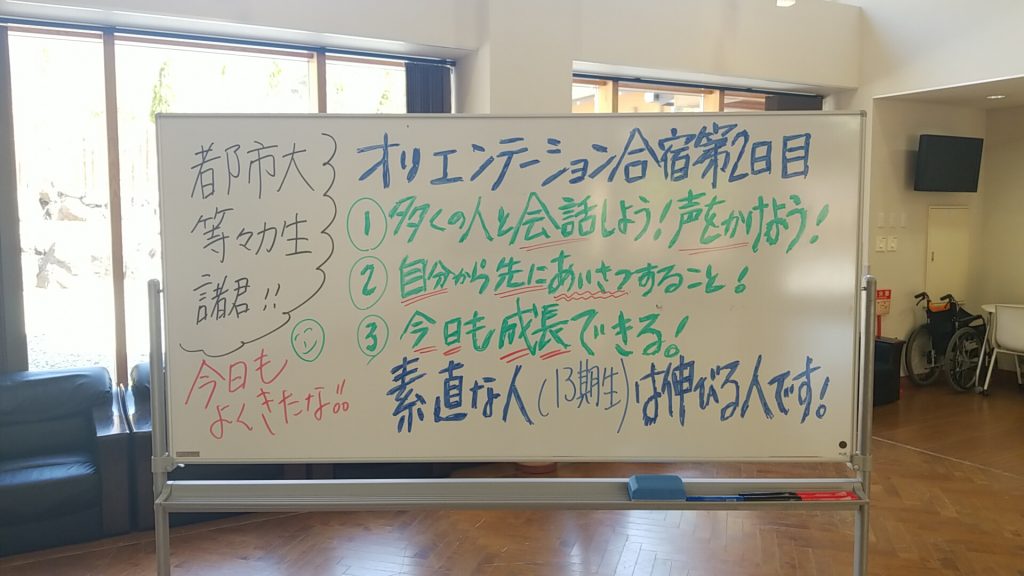 都市大
等々力生
諸君!!
今日も
よくきたな!!
オリエンテーション合宿第2日目
① 多くの人と会話しよう!声をかけよう!
② 自分から先にあいさつすること!
③ 今日も成長できる!
素直な人(13期生)は伸びる人です!